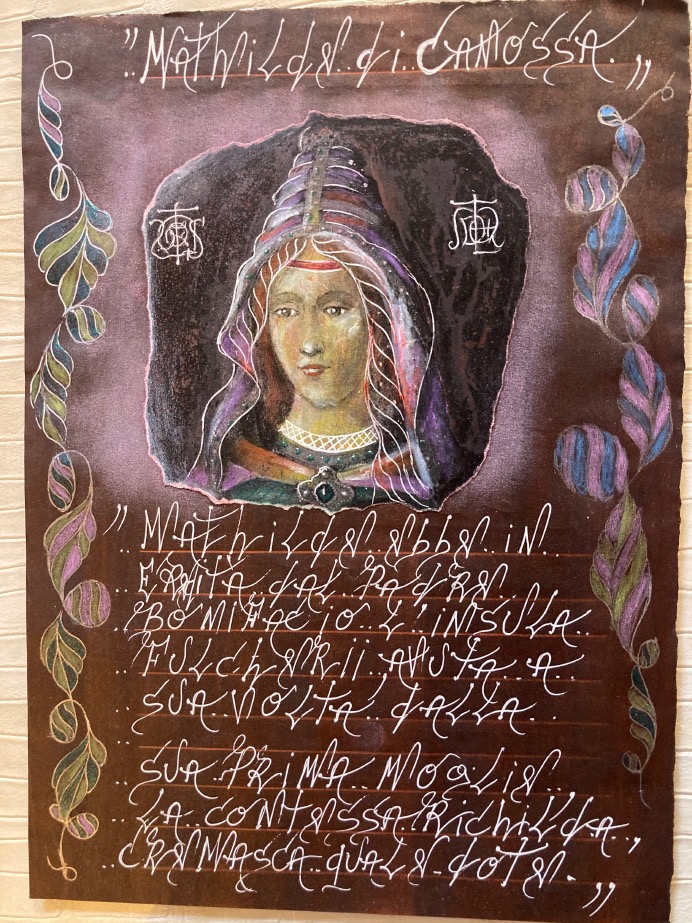 "MAThiLdE di CANOSSA."
"MAThiLdE EbbE iN
EREdiTà dAL PAdRE
BONiFAciO L'iNSULA
FULchERii AVUTA A
SUA VOLTA dALLA
SUA PRiMA MOGLiE
LA cONTESSA RichiLdA,
cREMAScA QUALE dOTE."